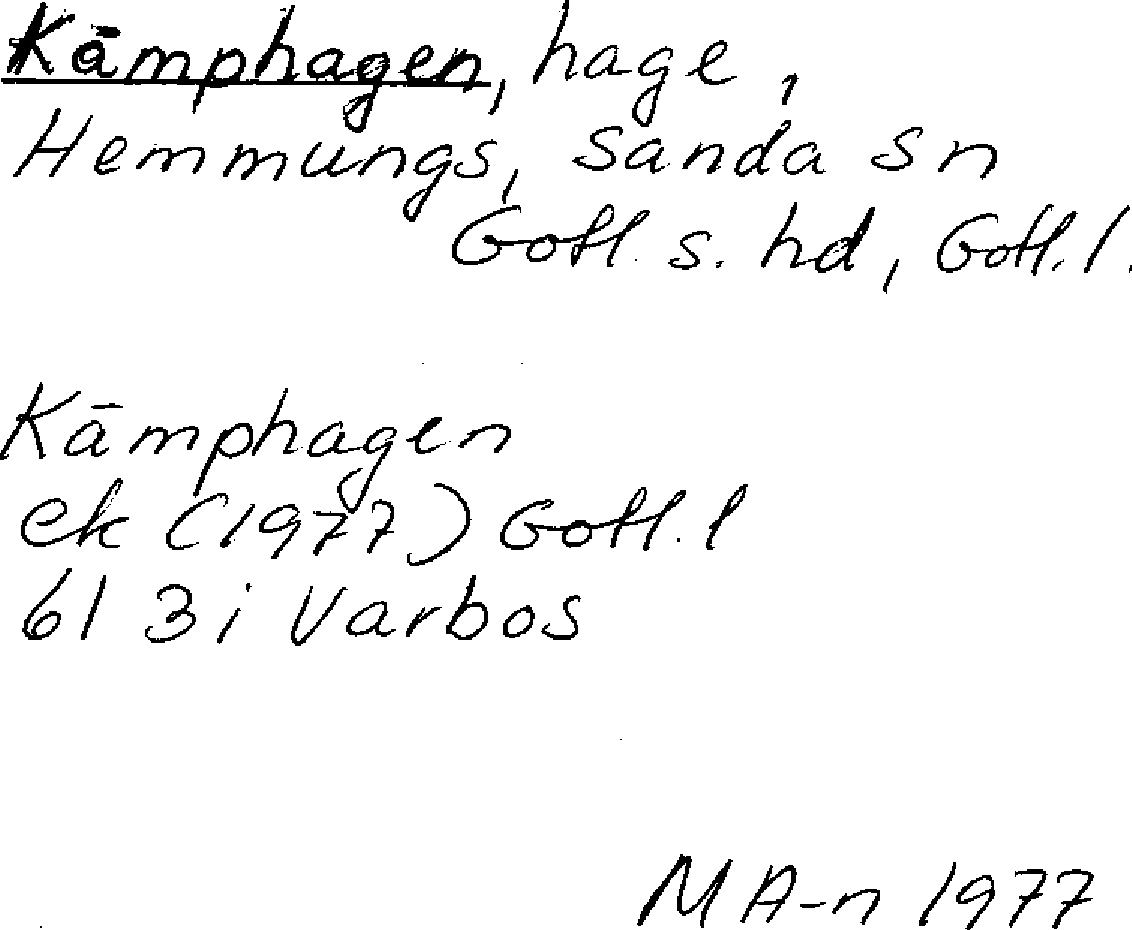 Kämphagen, hage,
Hemmungs, Sanda sn
Gotl. s. hd, Gotl. l.
Kämphagen
ek (1977) Gotl. l
6I 3i Varbos
MA-n 1977